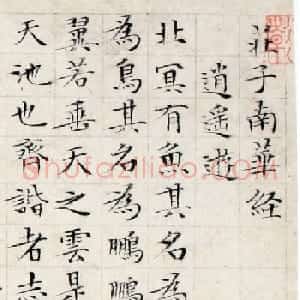 莊子南華经
逍遥遊
北冥有魚其名為
為鳥其名為鵬鵬
翼若垂天之雲是
天池也齊諧者志
shufaziliao.com